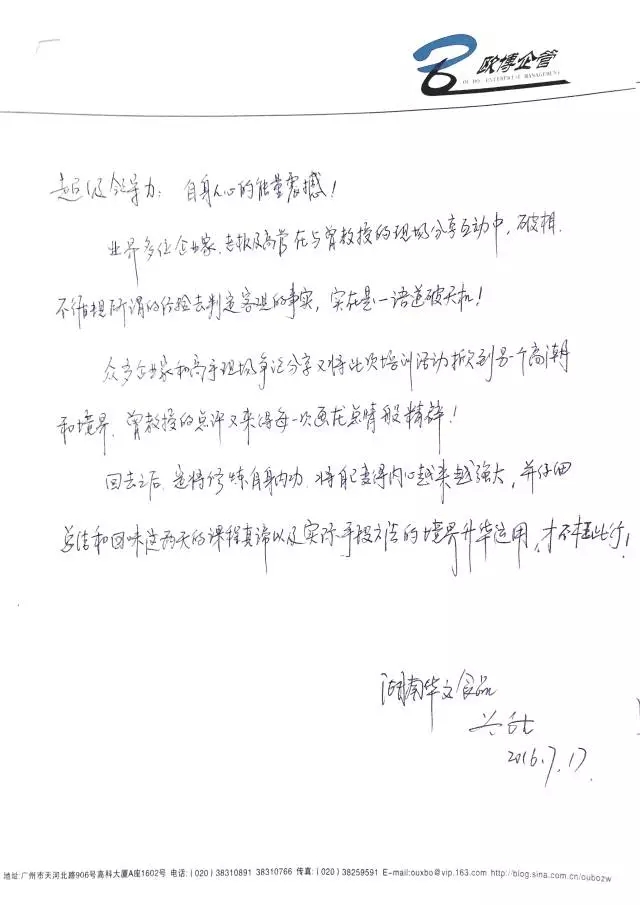 欧博企管
OU BO ENTERPRISE MANAGEMENT
超级领导力：自身人心的能量震撼！
业界多位企业家、老板及高管在与曾教授的现场分享互动中，破相，
不循规所谓的经验去判定客观的事实，实在是一语道破天机！
众多企业家和高手现场争论分享又将此次培训活动掀到另一个高潮
和境界，曾教授的点评又来得每一次画龙点睛般精辟！
回去之后，定将修炼自身内功，将自己变得内心越来越强大，并仔细
总结和回味这两天的课程真谛以及实际手段方法的境界升华运用，才不枉此行！
湖南华文食品
2016.7.17
地址:广州市天河北路906号高科大厦A座1602号 电话:(020)38310891 38310766 传真:(020)38259591 E-mail:ouxbo@vip.163.com http://blog.sina.com.cn/oubozw